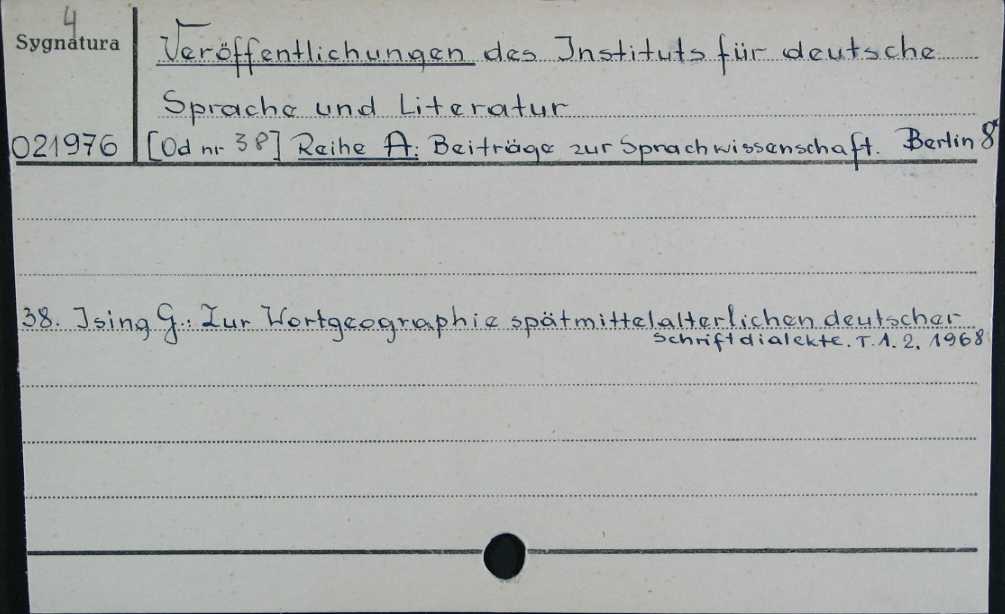 4
Sygnatura
Veröffentlichungen des Instituts für deutsche
Sprache und Literatur
021976 [Od nr 38] Reihe A: Beiträge zur Sprachwissenschaft. Berlin 8°
38. Ising G.: Zur Wortgeographie spätmittelalterlichen deutscher
Schriftdialekte. T. 1. 2. 1968